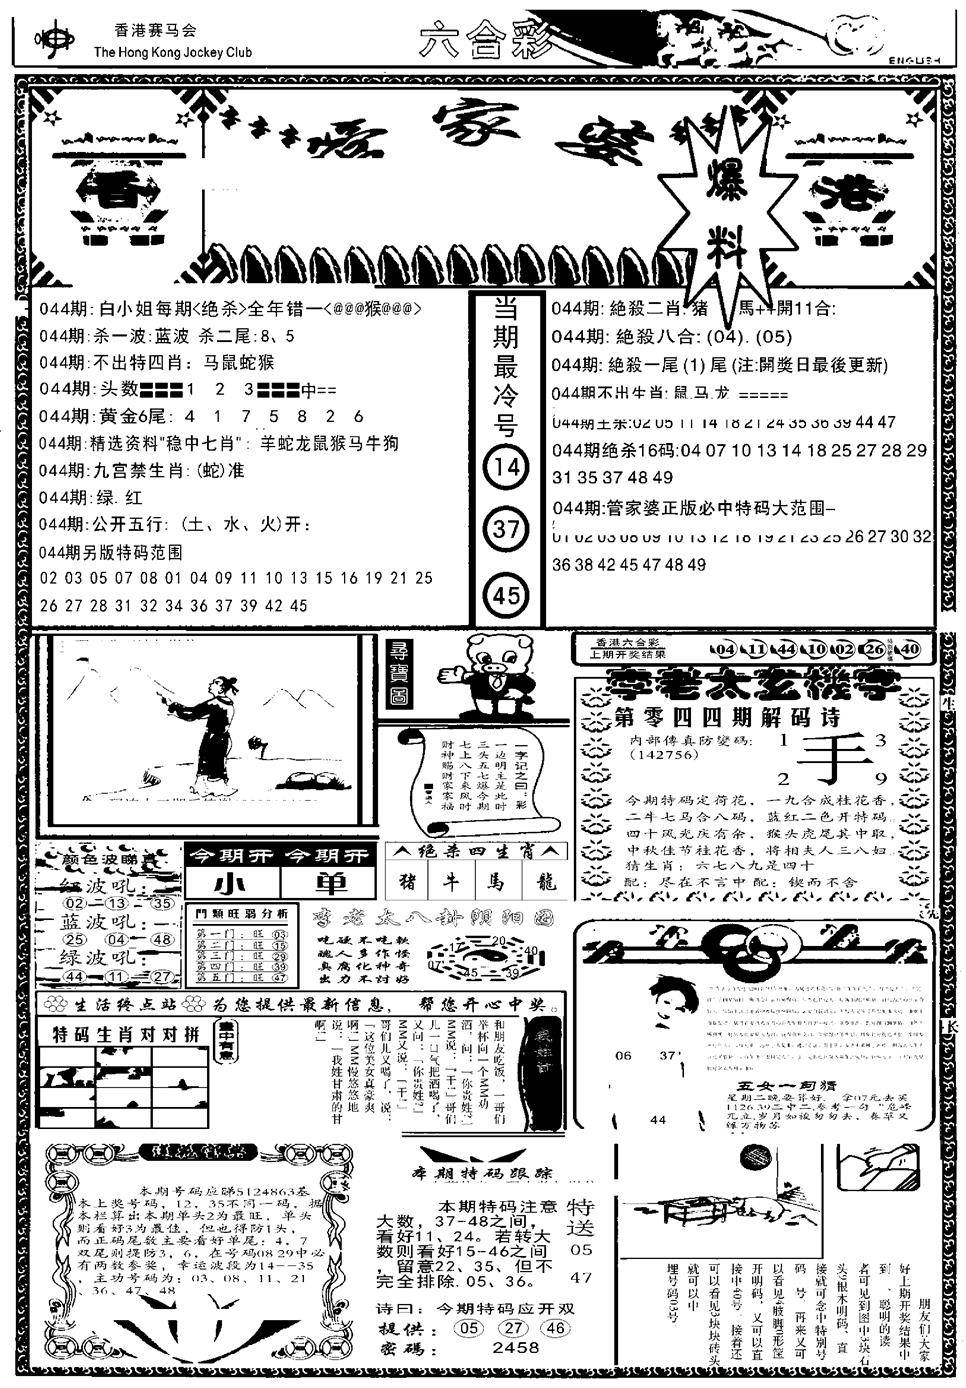 香港赛马会
The Hong Kong Jockey Club
六合彩
ENGLISH
香
家
爆料
港
044期:白小姐每期<绝杀>全年错一<@@@猴@@@>
044期:杀一波:蓝波 杀二尾:8、5
044期:不出特四肖: 马鼠蛇猴
044期:头数〓〓〓1 2 3〓〓〓中==
044期:黄金6尾: 4 1 7 5 8 2 6
044期:精选资料"稳中七肖": 羊蛇龙鼠猴马牛狗
044期:九宫禁生肖:(蛇)准
044期:绿. 红
044期:公开五行: (土、水、火)开:
044期另版特码范围
02 03 05 07 08 01 04 09 11 10 13 15 16 19 21 25
26 27 28 31 32 34 36 37 39 42 45
当期最冷号
14
37
45
044期: 絶殺二肖:猪 馬++開11合:
044期: 絶殺八合: (04). (05)
044期: 絶殺一尾 (1) 尾 (注:開獎日最後更新)
044期不出生肖: 鼠.马.龙 =====
02 05 11 14 18 21 24 35 36 39 44 47
044期绝杀16码:04 07 10 13 14 18 25 27 28 29
31 35 37 48 49
044期:管家婆正版必中特码大范围–
01 02 03 08 09 10 13 12 18 19 21 23 25 26 27 30 32
36 38 42 45 47 48 49
尋寶圖
一字记之曰:彩
一边明主是此时
三头五七爆今期
七上八下来风时
财神赐财家家福
香港六合彩
上期开奖结果
04 11 44 10 02 26 40
李老太玄機字
第零四四期解码诗
内部傳真防變码:
(142756)
1 手 3
2 9
今期特码定荷花，一九合成桂花香，
二牛七马合八码，蓝红二色开特码。
四十风光庆有余，猴头虎尾其中取，
中秋佳节桂花香，将相夫人三八妇。
猜生肖：六七八九是四十
配：尽在不言中 配：锲而不舍
颜色波睇真
红波吼:
02–13–35
蓝波吼:
25 04–48
绿波吼:
44–11–27
今期开 今期开
小 单
門類旺弱分析
第一门: 旺 03
第二门: 旺 15
第三门: 旺 29
第四门: 旺 39
第五门: 旺 47
绝杀四生肖
猪 牛 馬 龍
李老太八卦阴阳图
吃硬不吃软
丑人多作怪
臭腐化神奇
出力不讨好
17 20 40 39 45 07
生活终点站 为您提供最新信息， 帮您开心中奖。
特码生肖对对拼
画中有意
和朋友吃饭，一哥们
举杯向一个MM劝
酒，问：「你贵姓?」
MM说：「干!」哥们
儿一口气把酒喝了，
又问：「你贵姓?」
MM又说：「干!」
哥们儿又喝了，说：
「这位美女真豪爽
啊!」MM慢悠悠地
说：「我姓甘肃的甘
啊!」
06 37
44
五女一句猜
星期二晚要算好， 拿07元去买
1126 39二中二，参考一句“危峰
兀立，岁月如梭匆匆去，春草又
绿万物苏
本期号码应睇5124863基
本上奖号码，12，35不同一码，据
本栏算出本期单头2为最旺，单头
则看好3为最佳，但也得防1头，
而正码尾数主要看好单尾：4，7
双尾则提防3，6，在号码08 29中必
有两数参奖，幸运波段为14––35
，主功号码为：03、08、11、21
、36、47、48
本期特码跟踪
本期特码注意
大数，37-48之间，
看好11、24。若转大
数则看好15-46之间
，留意22、35、但不
完全排除.05、36。
特送
05
47
诗曰：今期特码应开双
提供： 05 27 46
密码： 2458
朋友们大家
好上期开奖结果中
到，聪明的读
者可见到图中3块石
头2根木明码、直
接就可念中特别号
码 号 再来又可
以看见4肢脚0形筐
开明码，又可以直
接中40号 接着还
可以看见3块块砖头
就可以中
埋号码03号